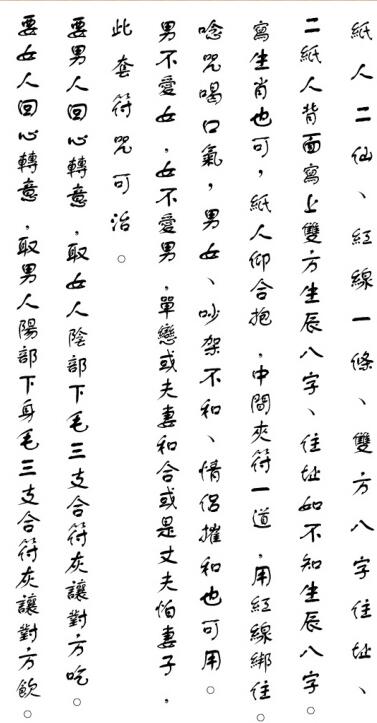 紙人二仙、紅線一條、雙方八字住址、
二紙人背面寫上雙方生辰八字、住址如不知生辰八字。
寫生肖也可，紙人仰合抱，中間夾符一道，用紅線綁住。
唸咒喝口氣，男女、吵架不和、情侶摧和也可用。
男不愛女，女不愛男，單戀或夫妻和合或是丈夫怕妻子，
此套符咒可治。
要男人回心轉意，取女人陰部下毛三支合符灰讓對方吃。
要女人回心轉意，取男人陽部下身毛三支合符灰讓對方飲。